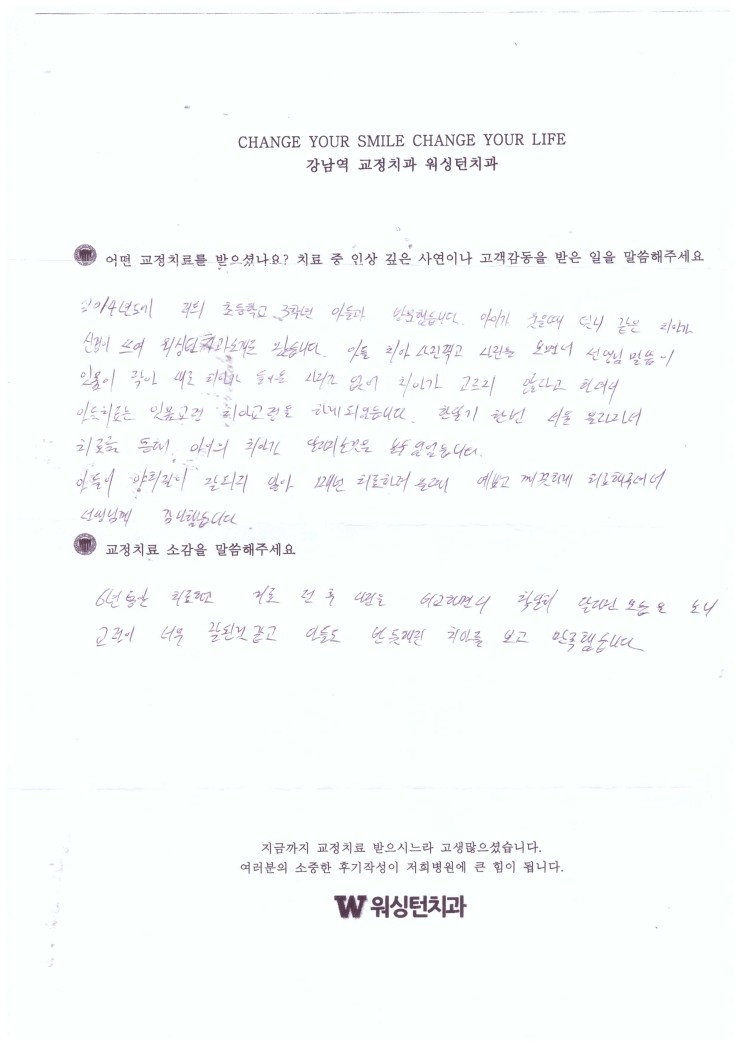 CHANGE YOUR SMILE CHANGE YOUR LIFE
강남역 교정치과 워싱턴치과
어떤 교정치료를 받으셨나요? 치료 중 인상 깊은 사연이나 고객감동을 받은 일을 말씀해주세요
초등학교 3학년 아들과 방문했습니다. 아이가 웃을때 덧니 같은 치아가
신경이 쓰여 워싱턴치과 되었습니다. 아들 치아 사진찍고 사진을 보면서 선생님 말씀이
잇몸이 작아 새로 치아가 들어올 자리가 없어 치아가 고르지 않다고 하여서
잇몸교정 치아교정을 하게되었습니다. 한달기 한번 서울 올라가서
치료를 통해 아이의 치아가 달라지는것을 볼수 있었습니다.
아들이 양치질이 잘되지 않아 매번 치료하러 올때마다 깨끗하게
선생님께
교정치료 소감을 말씀해주세요
6년동안 치료하고 치료 전 후 사진을 비교하면서 확실히 달라진 모습을 보니
교정이 너무 잘된것 같고 아들도 반듯해진 치아를 보고 만족했습니다
지금까지 교정치료 받으시느라 고생많으셨습니다.
여러분의 소중한 후기작성이 저희병원에 큰 힘이 됩니다.
W 워싱턴치과